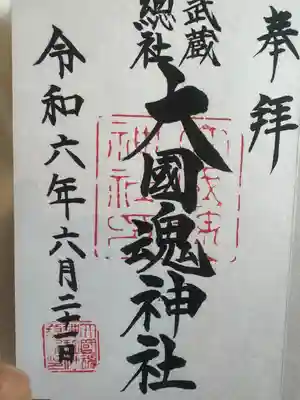 奉拝
武蔵
總社
大國魂神社
令和六年六月二十一日